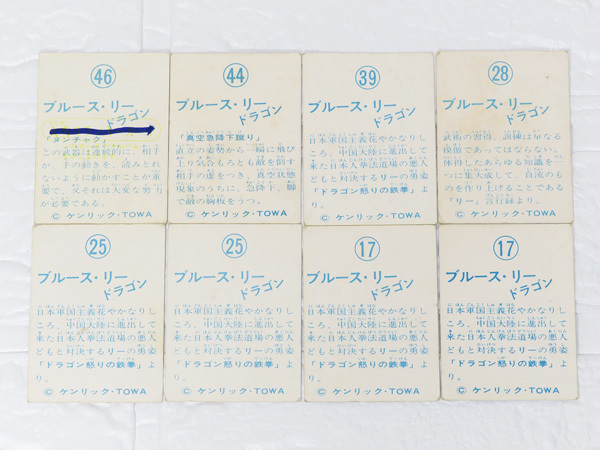 46
ブルース・リー
ドラゴン
「ヌンチャク」
この武器は連続的に、相手
が、手の動きを、読みとれ
ないように動かすことが重
要で、又それは大変な努力
が必要である。
© ケンリック・TOWA
44
ブルース・リー
ドラゴン
「真空急降下蹴り」
直立の姿勢から一瞬に飛び
下りながらもろとも敵を倒す
相手の虚をつき、真空状態
現象のうちに、急降下、脚
で敵の胸板をうつ。
© ケンリック・TOWA
39
ブルース・リー
ドラゴン
日本軍国主義花やかなりし
ころ、中国大陸に進出して
来た日本人拳法道場の悪人
どもと対決するリーの勇姿
「ドラゴン怒りの鉄拳」より
© ケンリック・TOWA
28
ブルース・リー
ドラゴン
武板の習得、訓練は単なる
模倣であってはならない。
体得したあらゆる知識を一
つに集大成して、自流のも
のを作り上げることである
「リー」言行録より。
© ケンリック・TOWA
25
ブルース・リー
ドラゴン
日本軍国主義花やかなりし
ころ、中国大陸に進出して
来た日本人拳法道場の悪人
どもと対決するリーの勇姿
「ドラゴン怒りの鉄拳」よ
り。
© ケンリック・TOWA
25
ブルース・リー
ドラゴン
日本軍国主義花やかなりし
ころ、中国大陸に進出して
来た日本人拳法道場の悪人
どもと対決するリーの勇姿
「ドラゴン怒りの鉄拳」よ
り。
© ケンリック・TOWA
17
ブルース・リー
ドラゴン
日本軍国主義花やかなりし
ころ、中国大陸に進出して
来た日本人拳法道場の悪人
どもと対決するリーの勇姿
「ドラゴン怒りの鉄拳」よ
り。
© ケンリック・TOWA
17
ブルース・リー
ドラゴン
日本軍国主義花やかなりし
ころ、中国大陸に進出して
来た日本人拳法道場の悪人
どもと対決するリーの勇姿
「ドラゴン怒りの鉄拳」よ
り。
© ケンリック・TOWA